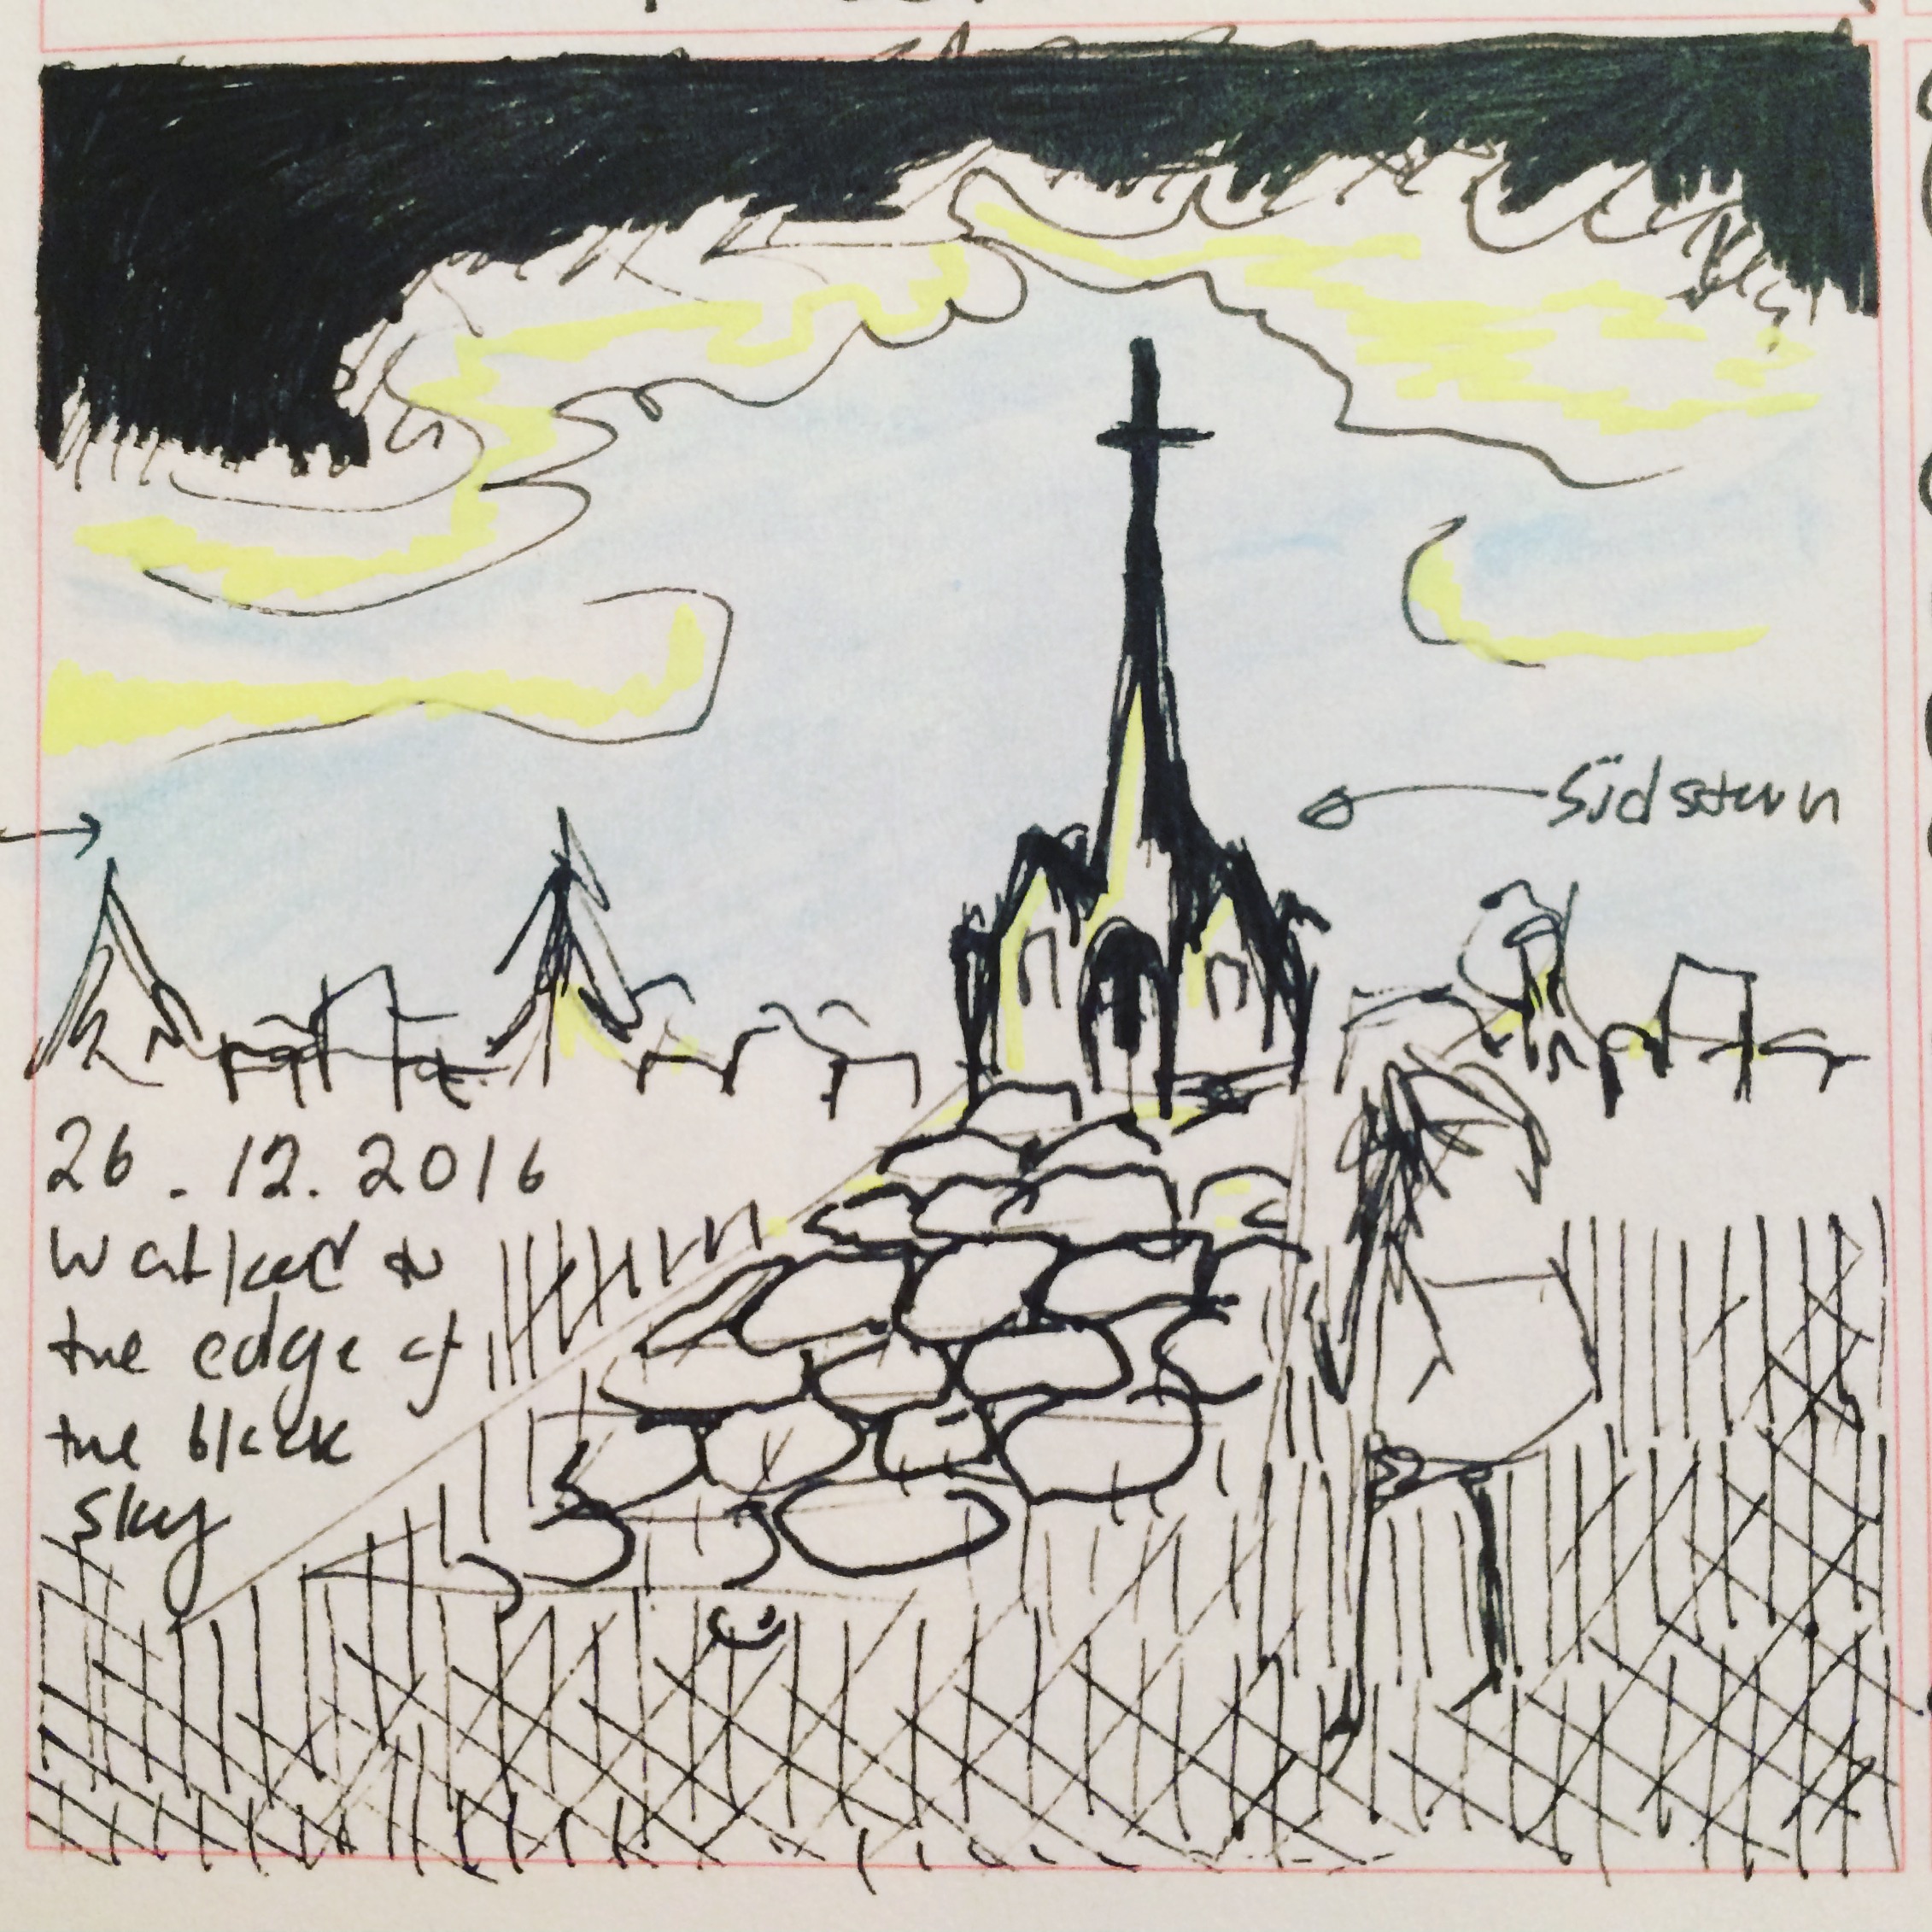 Südstern
26.12.2016
Walked to
the edge of
the black
sky